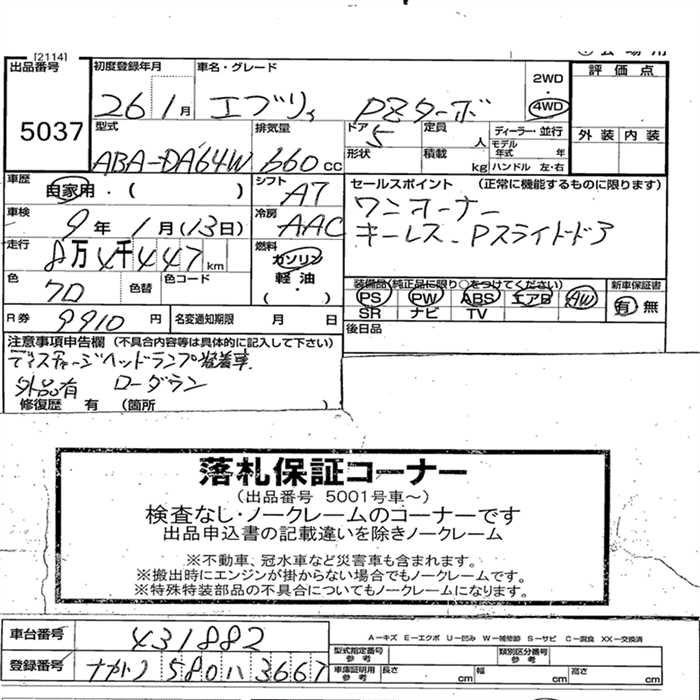 [2114]
出品番号
5037
初度登録年月 車名・グレード
26 1月 エブリィ PZターボ
2WD
・
4WD
評価点
外装 内装
型式 排気量 ドア 定員 ディーラー・並行
ABA-DA64W 660cc 5 人 モデル年式 年
形状 積載 kg ハンドル 左・右
車歴 自家用・( ) シフト A7
セールスポイント (正常に機能するものに限ります)
ワンオーナー
キーレス PスライドドA
車検 9年 1月(13日) 冷房 AAC
走行 8万4千447km 燃料 ガソリン
軽油
・
( )
色 色替 色コード
装備品(純正品に限り○をつけてください) 新車保証書
PS PW ABS エアB AW 有 無
SR ナビ TV
R券 9910円 名変通知期限 月 日
後日品
注意事項申告欄 (不具合内容等は具体的に記入して下さい)
ディスチャージヘッドランプ装着車
外品有
修復歴 有 (箇所 )
落札保証コーナー
(出品番号 5001号車～)
検査なし・ノークレームのコーナーです
出品申込書の記載違いを除きノークレーム
※不動車、冠水車など災害車も含まれます。
※搬出時にエンジンが掛からない場合でもノークレームです。
※特殊特装部品の不具合についてもノークレームになります。
車台番号 431882
A−キズ E−エクボ U−凹み W−補修跡 S−サビ C−腐食 XX−交換済
型式指定番号 参考 類別区分番号 参考
登録番号 580 ハ 3667
車庫証明用 参考 長さ cm 幅 cm 高さ cm